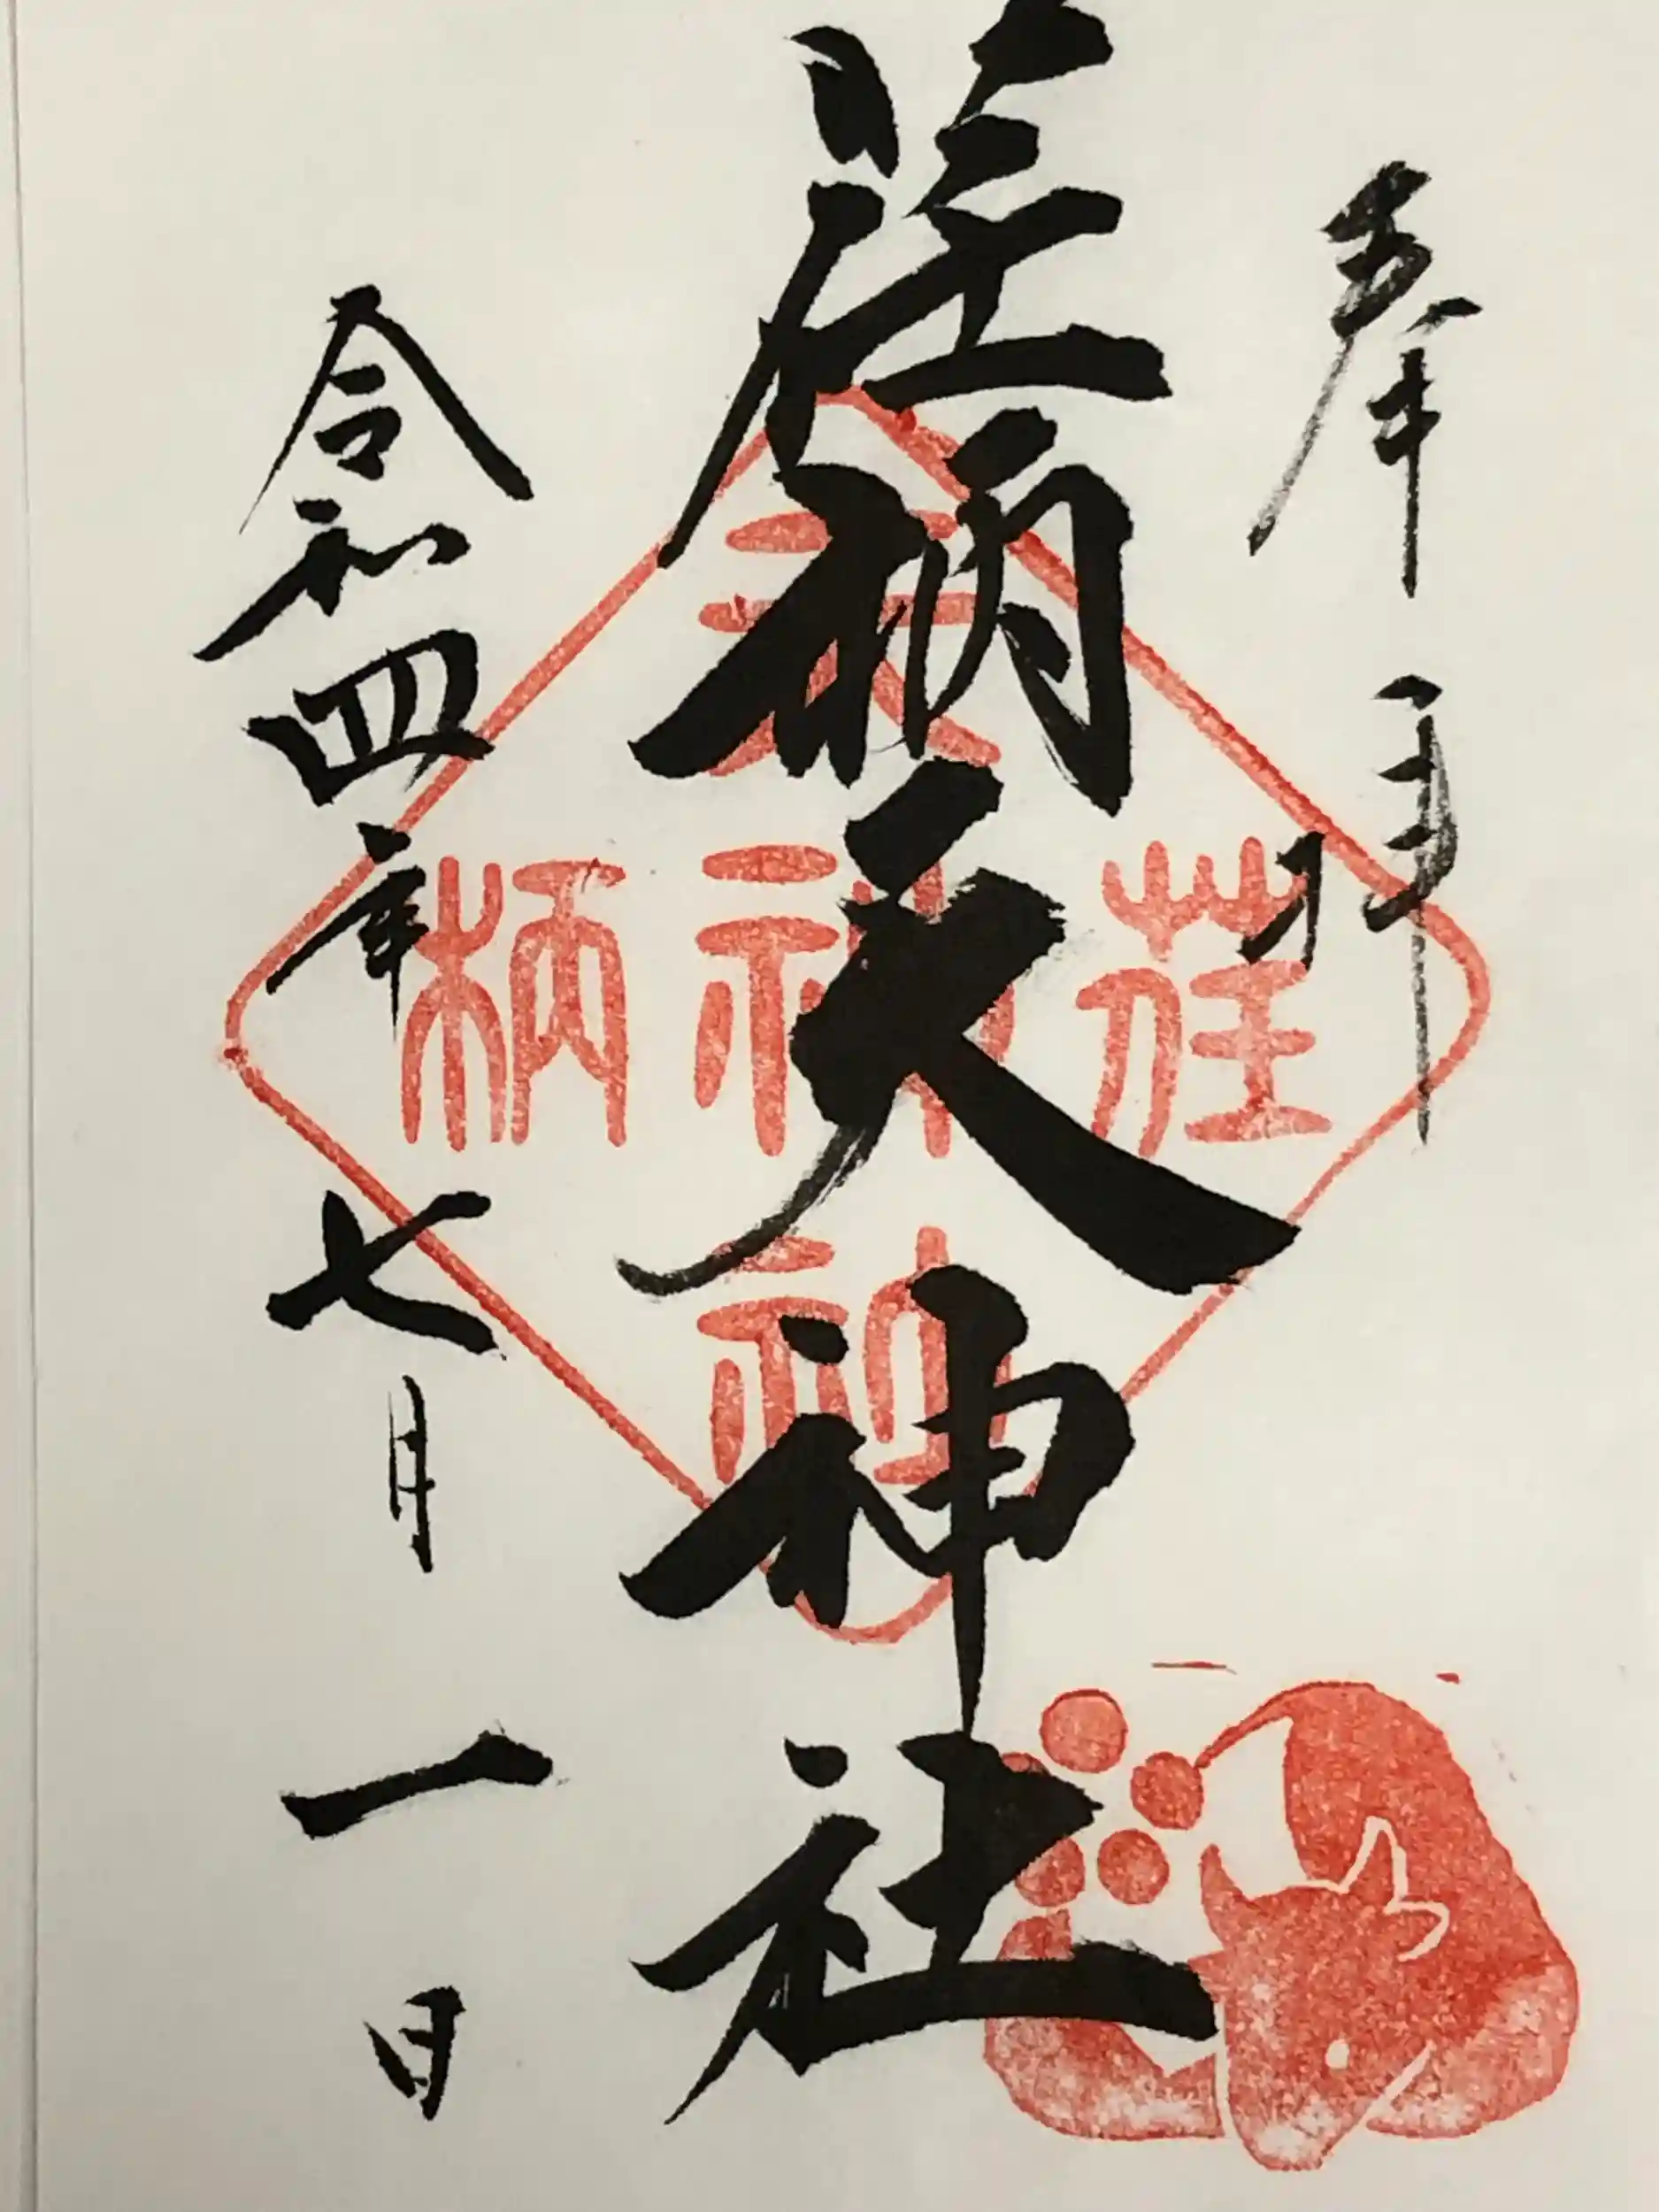 奉拝
荏柄天神社
令和四年七月一日
天
荏神柄
社